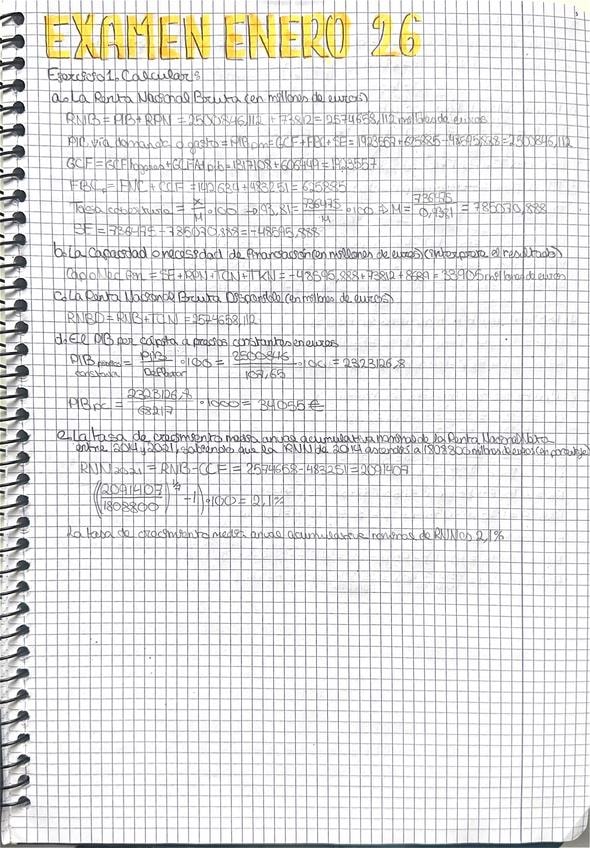 EXAMEN ENERO 26
Ejercicio 1. Calcular:
a. La Renta Nacional Bruta (en millones de euros)
RNB = PIB + RPN = 2500846,112 + 73812 = 2574658,112 millones de euros
PIB, vía demanda o gasto = PIB pm = GCF + FBC + SE = 1923557 + 625885 - 48595,888 = 2500846,112
GCF = GCF hogares + GCF Ad pub = 1317108 + 606449 = 1923557
FBC = FNC + CCF = 142634 + 483251 = 625885
Tasa cobertura = X/M · 100 → 93,81 = 736475/M · 100 → M = 736475/0,9381 = 785070,888
SE = 736475 - 785070,888 = -48595,888
b. La Capacidad o necesidad de financiación (en millones de euros) (interprete el resultado)
Cap o Nec fin = SE + RPN + TCN + TKN = -48595,888 + 73812 + 8689 = 33905 millones de euros
c. La Renta Nacional Bruta Disponible (en millones de euros)
RNBD = RNB + TCN = 2574658,112
d. El PIB per cápita a precios constantes en euros
PIB precios constante = PIB/Deflactor · 100 = 2500846/107,65 · 100 = 2323126,8
PIB pc = 2323126,8/68217 · 1000 = 34055 €
e. La tasa de crecimiento media anual acumulativa nominal de la Renta Nacional Neta
entre 2014 y 2021, sabiendo que la RNN de 2014 asciende a 1808800 millones de euros (en porcentaje)
RNN 2021 = RNB - CCF = 2574658 - 483251 = 2091407
((2091407/1808800)^1/7 - 1) · 100 = 2,1%
La tasa de crecimiento media anual acumulativa nominal de RNN es 2,1%